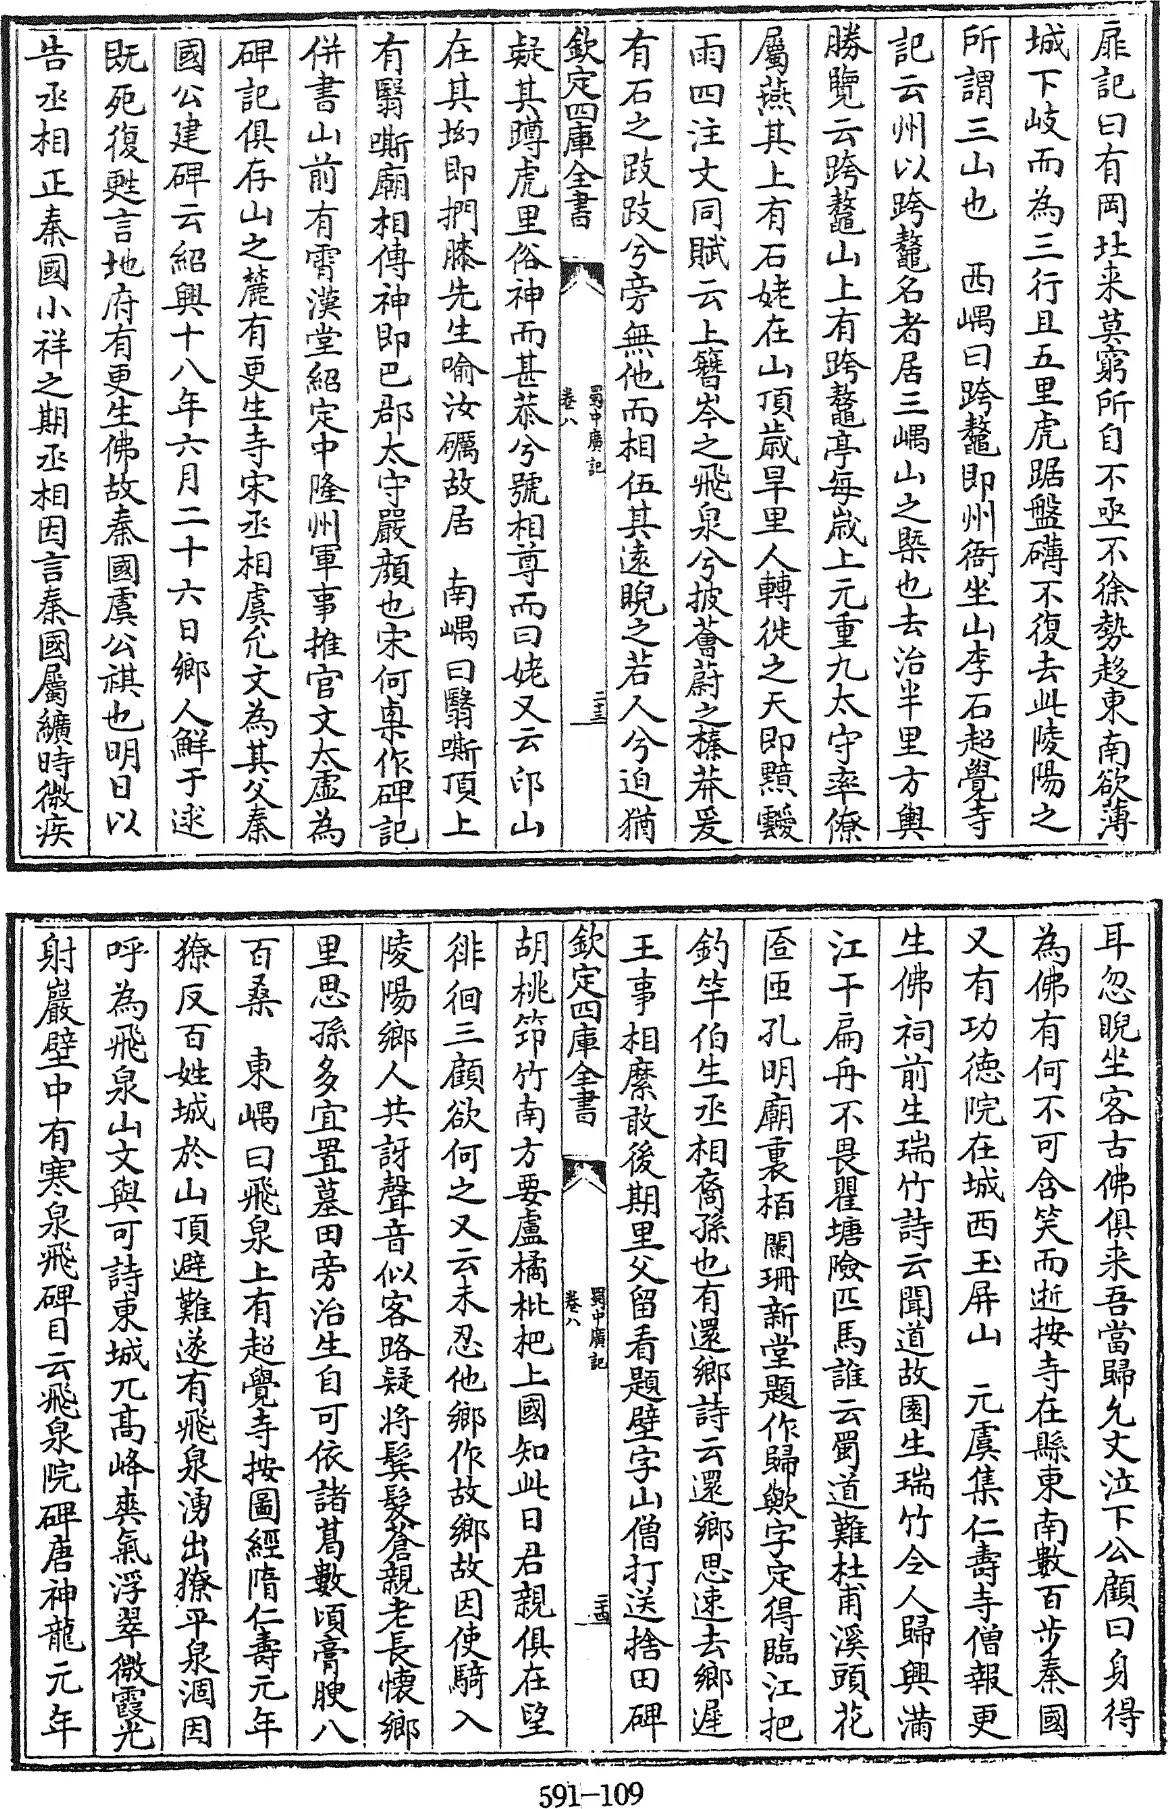 扉記曰有岡𡉏来莫窮所自不亟不徐勢趍東南欲薄
城下岐而為三行且五里虎踞盤礴不復去此陵陽之
所謂三山也　西嵎曰跨鼇即州衙坐山李石超覺寺
記云州以跨鼇名者居三嵎山之槩也去治半里方輿
勝覽云跨鼇山上有跨鼇亭每歲上元重九太守率僚
屬燕其上有石姥在山頂歲旱里人轉徙之天即黯靉
雨四注文同賦云上簪岑之飛泉兮披薈蔚之榛莽爰
有石之跂跂兮旁無他而相伍其遠睨之若人兮迫猶
欽定四庫全書
蜀中廣記
卷八
二十三
疑其蹲虎里俗神而甚恭兮號相尊而曰姥又云邛山
在其㘭即捫膝先生喻汝礪故居　南嵎曰翳嘶頂上
有翳嘶廟相傳神即巴郡太守嚴顏也宋何㮚作碑記
併書山前有霄漢堂紹定中隆州軍事推官文太虛為
碑記俱存山之麓有更生寺宋丞相虞允文為其父秦
國公建碑云紹興十八年六月二十六日鄉人鮮于逑
既死復甦言地府有更生佛故秦國虞公祺也明日以
告丞相正秦國小祥之期丞相因言秦國屬纊時微疾
耳忽睨坐客古佛俱来吾當歸允文泣下公顧曰身得
為佛有何不可含笑而逝按寺在縣東南數百步秦國
又有功德院在城西玉屏山　元虞集仁壽寺僧報更
生佛祠前生瑞竹詩云聞道故園生瑞竹令人歸興滿
江干扁舟不畏瞿塘險匹馬誰云蜀道難杜甫溪頭花
匼匝孔明廟裏栢闌珊新堂題作歸歟字定得臨江把
釣竿伯生丞相裔孫也有還鄉詩云還鄉思速去鄉遲
王事相縻敢後期里父留看題壁字山僧打送捨田碑
欽定四庫全書
蜀中廣記
卷八
二十四
胡桃筇竹南方要盧橘枇杷上國知此日君親俱在望
徘徊三顧欲何之又云未忍他鄉作故鄉故因使騎入
陵陽鄉人共訝聲音似客路疑將鬂髮蒼親老長懷鄉
里思孫多宜置墓田旁治生自可依諸葛數頃膏腴八
百桑　東嵎曰飛泉上有超覺寺按圖經隋仁壽元年
獠反百姓城於山頂避難遂有飛泉湧出獠平泉涸因
呼為飛泉山文與可詩東城兀高峰爽氣浮翠微霞光
射巖壁中有寒泉飛碑目云飛泉院碑唐神龍元年
591-109